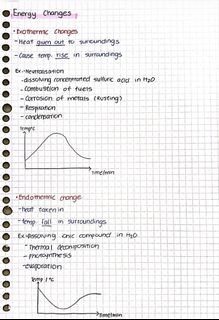 Energy Changes
• Exothermic changes
- Heat given out to surroundings
- Cause temp. rise in surroundings
Ex:- Neutralisation
- dissolving concentrated sulfuric acid in H2O
- Combustion of fuels
- Corrosion of metals (Rusting)
- Respiration
- condensation
Temp/°C
Time/min
• Endothermic change
- heat taken in
- temp. fall in surroundings
Ex:- Dissolving ionic compound in H2O
- Thermal decomposition
- photosynthesis
- evaporation
Temp / °C
Time/min